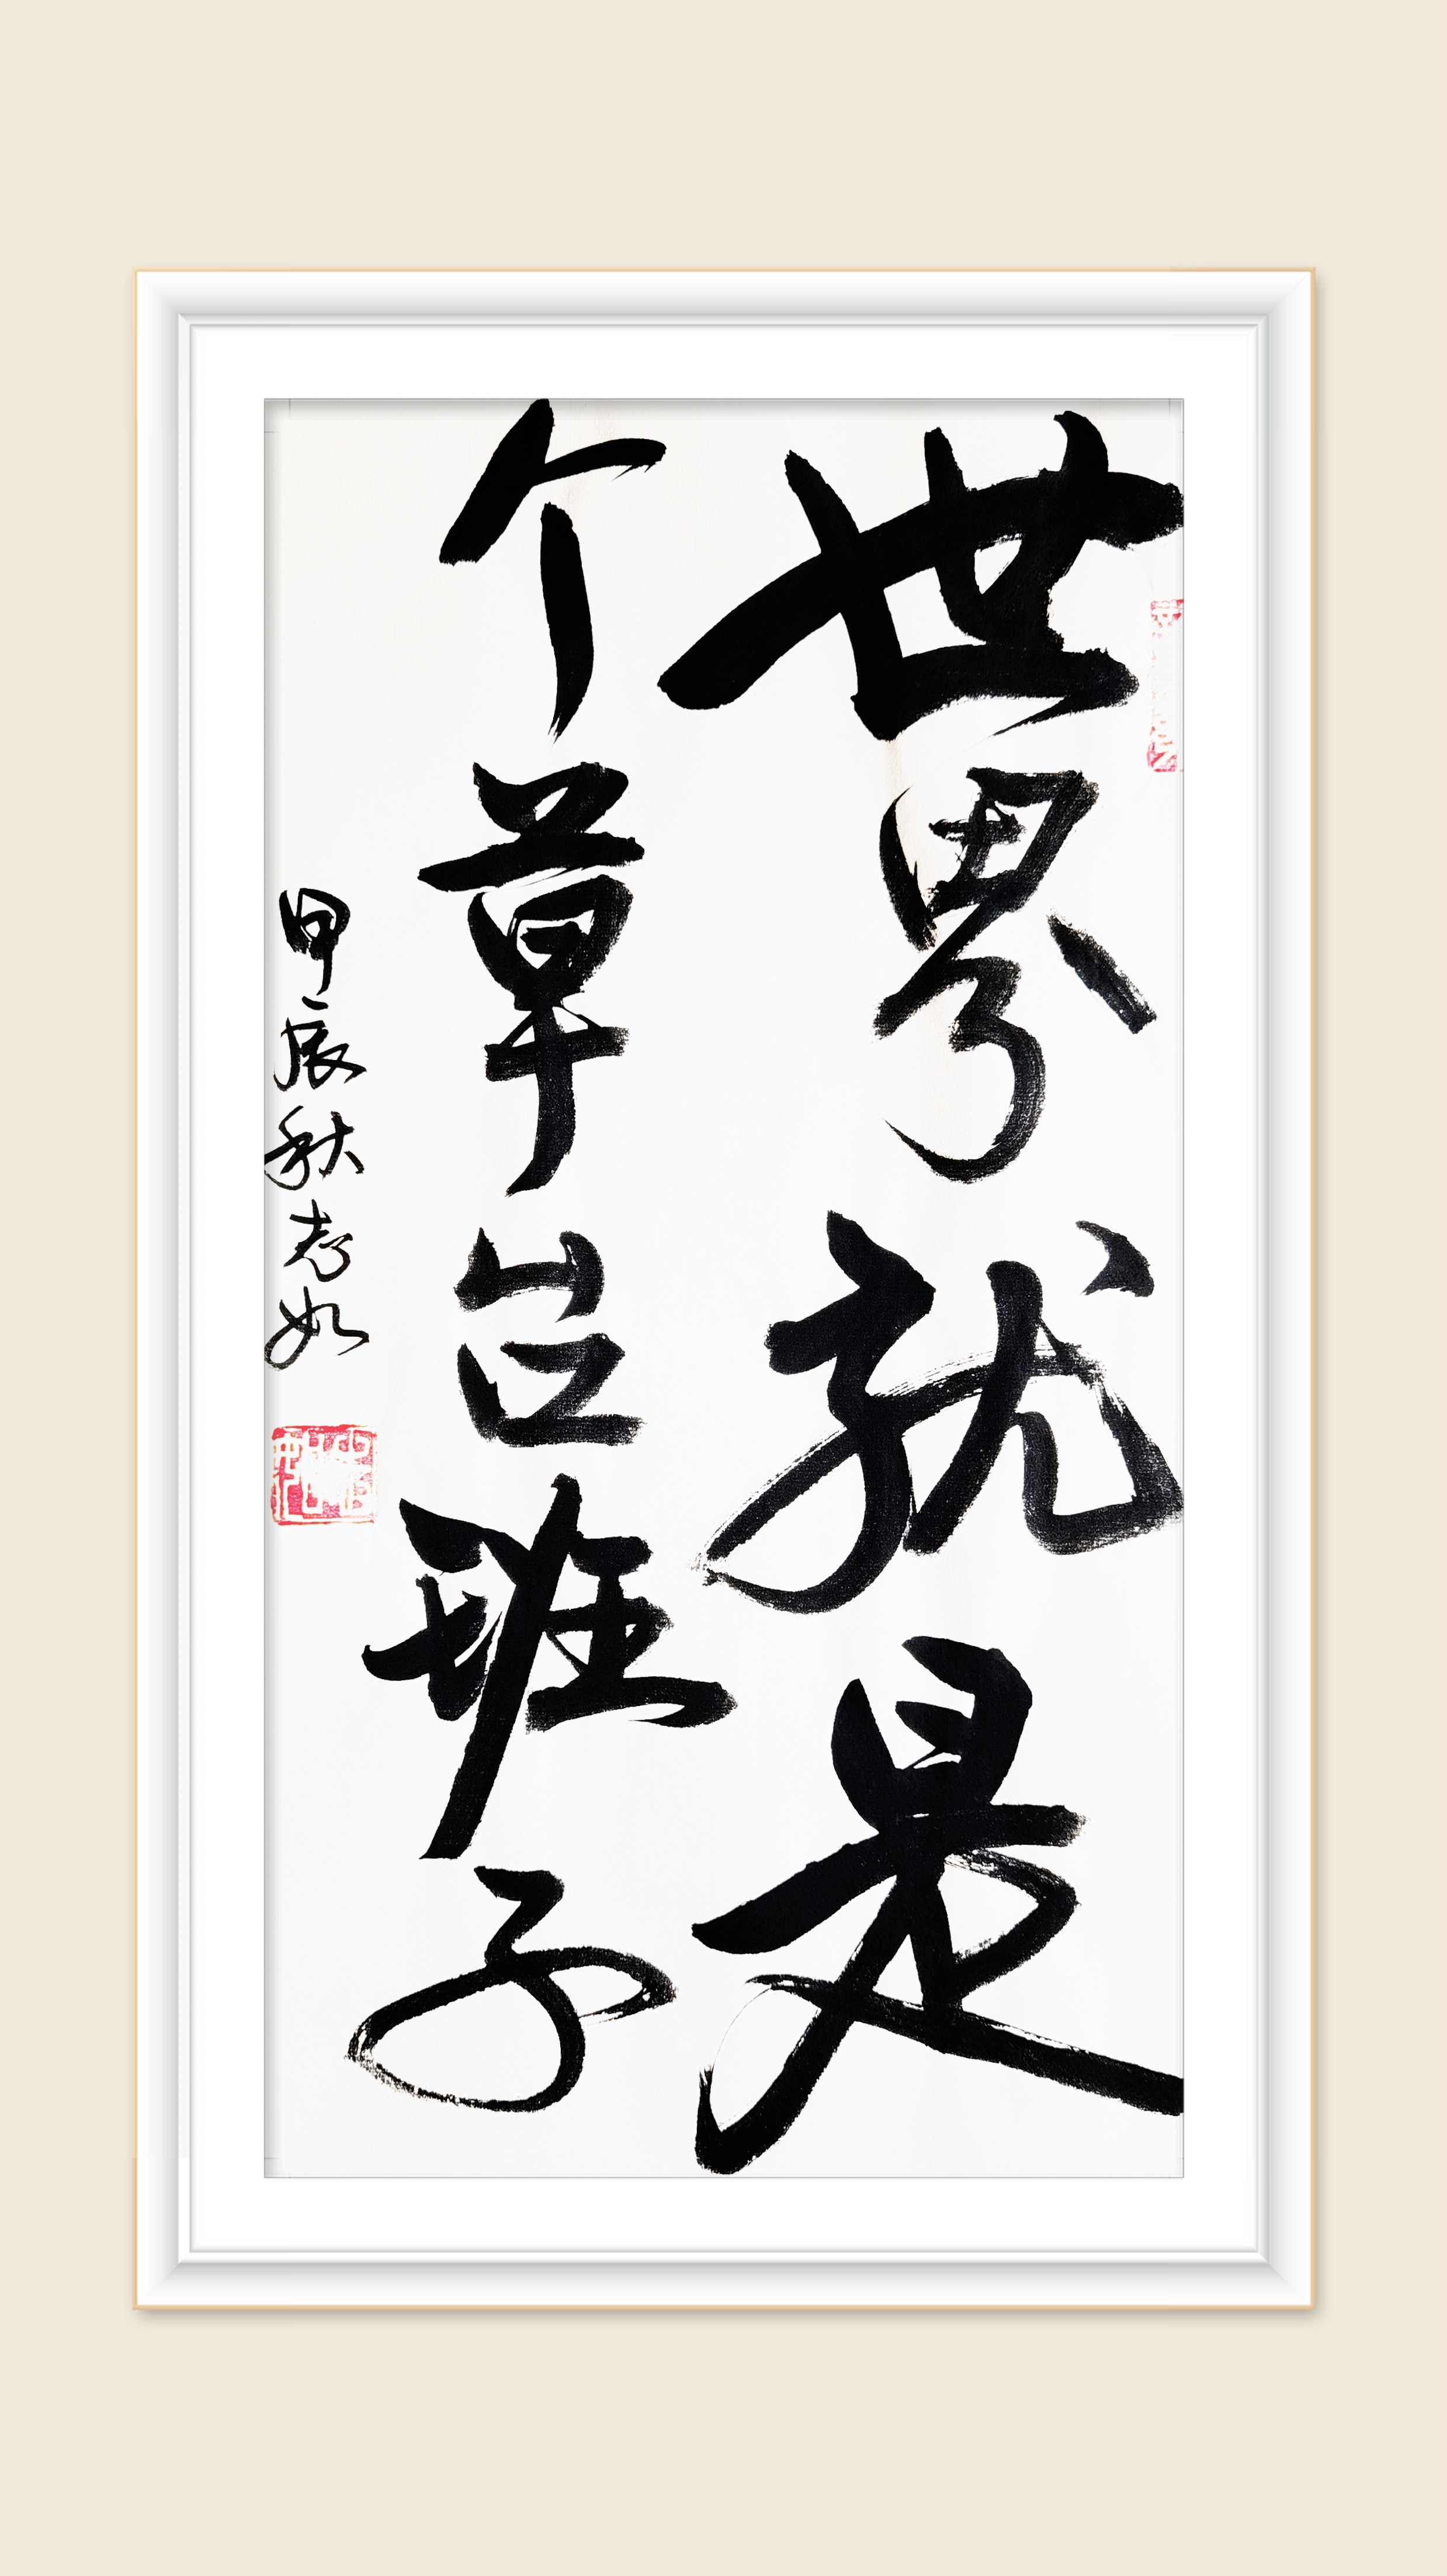 世界就是
个草台班子
甲辰秋如